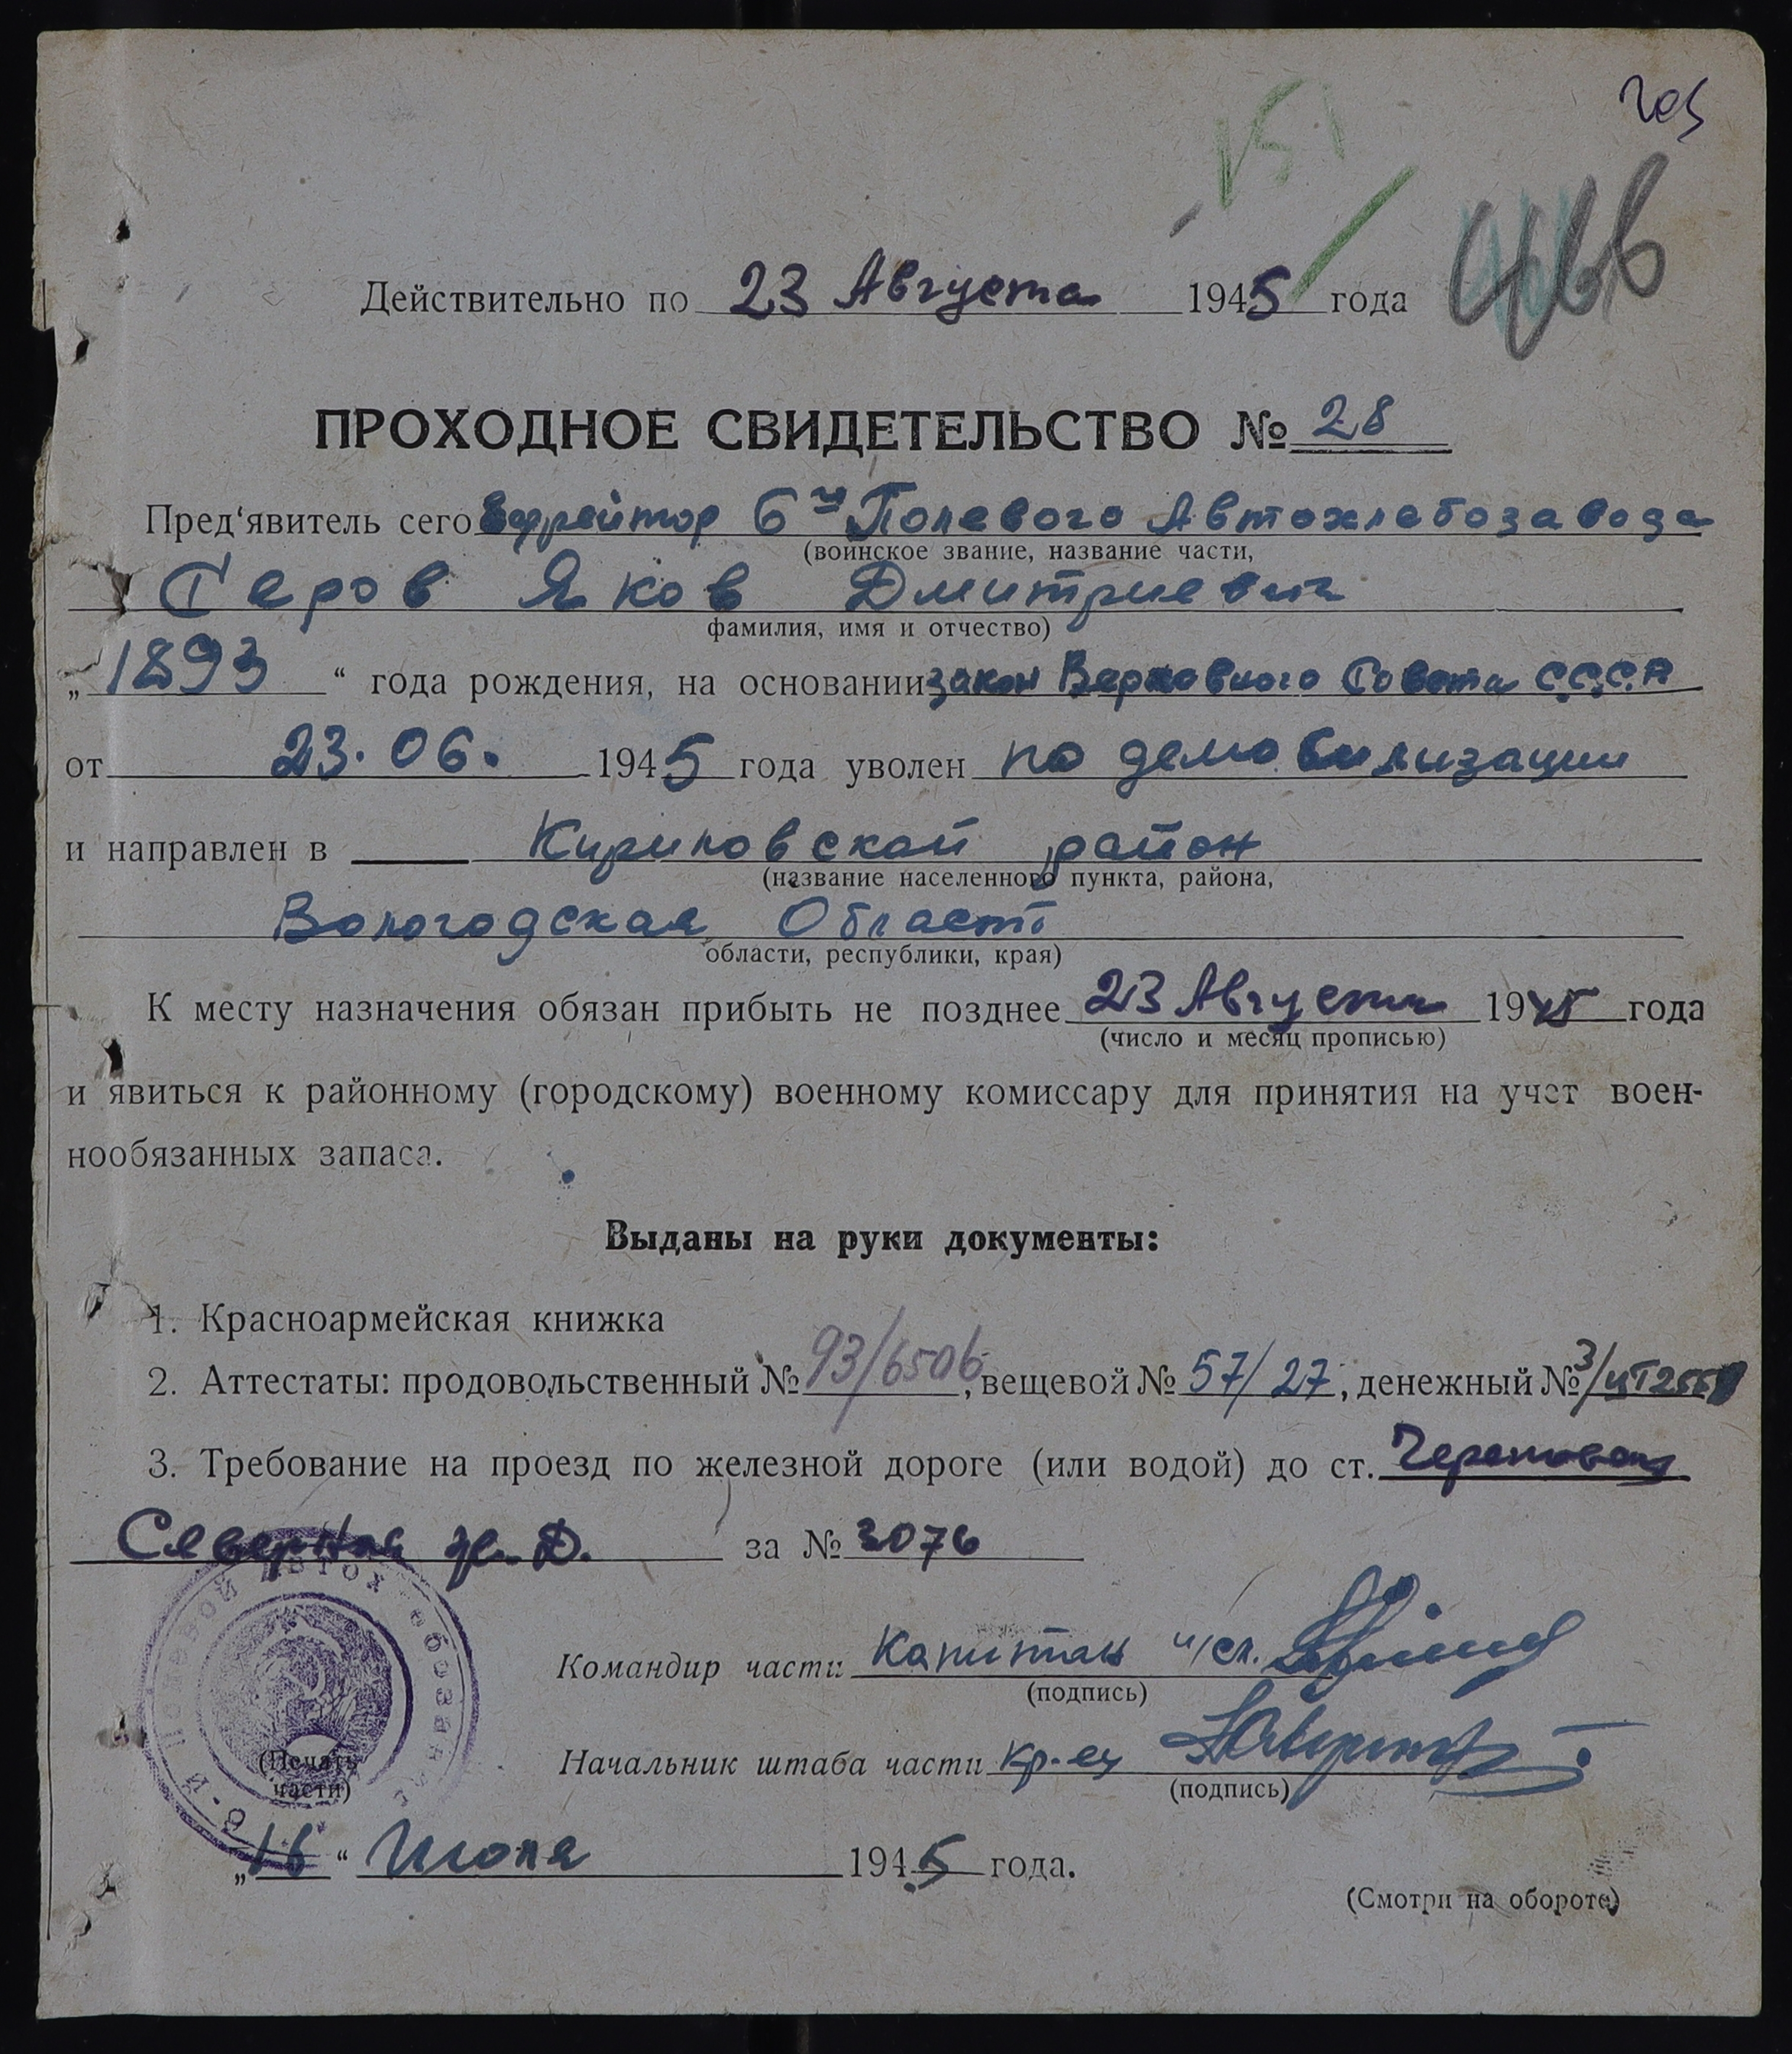 203
151
466
Действительно по 23 Августа 1945 года
ПРОХОДНОЕ СВИДЕТЕЛЬСТВО № 28
Пред'явитель сего Ефрейтор 6й Полевого Автохлебозавода
(воинское звание, название части,
Серов Яков Дмитриевич
фамилия, имя и отчество)
„1893“ года рождения, на основании закон Верховного Совета С.С.С.Р
от 23.06. 1945 года уволен по демобилизации
и направлен в Кириловской район
(название населенного пункта, района,
Вологодская Област
области, республики, края)
К месту назначения обязан прибыть не позднее 23 Августа 1945 года
(число и месяц прописью)
и явиться к районному (городскому) военному комиссару для принятия на учет воен-
нообязанных запаса.
Выданы на руки документы:
1. Красноармейская книжка
2. Аттестаты: продовольственный № 93/6506, вещевой № 57/27, денежный № 3/
3. Требование на проезд по железной дороге (или водой) до ст. Череповец
Северная ж.Д. за № 3076
Командир части Капитан
(подпись)
Начальник штаба части кр-ец
(подпись)
6-й Полевой
(Печать
части)
„16“ Июля 1945 года.
(Смотри на обороте)